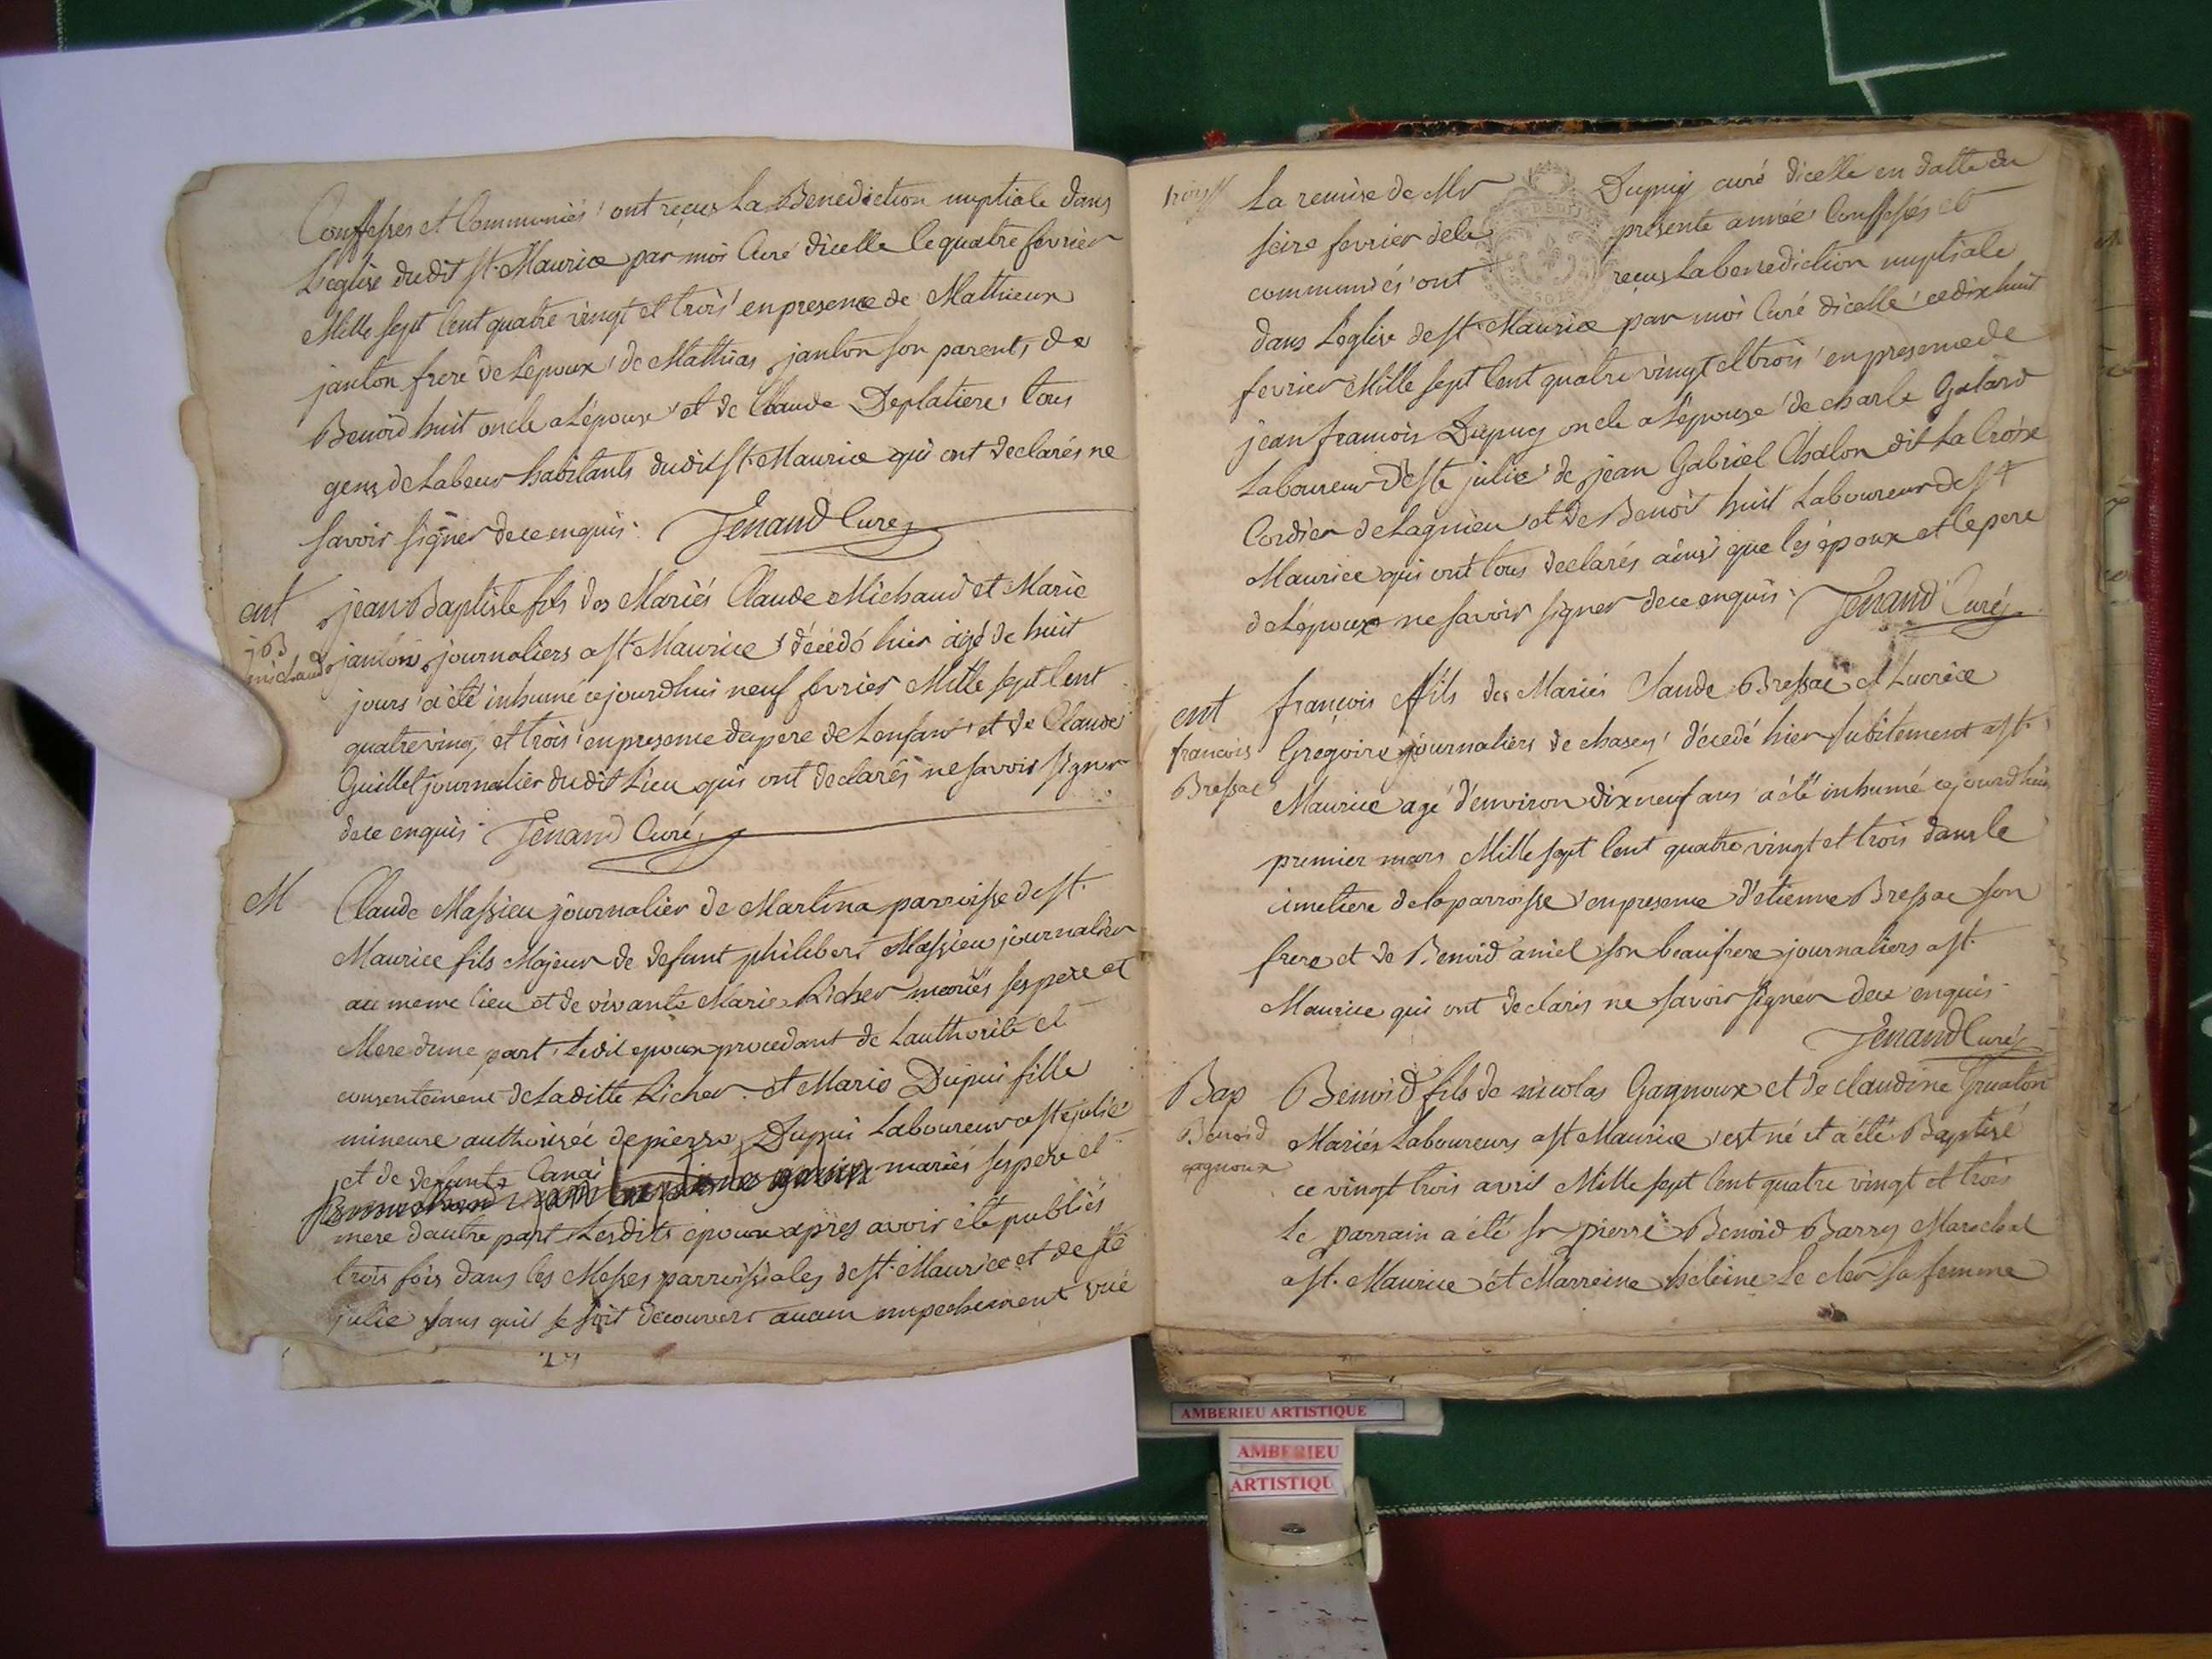 Confessés et Communiés ont reçus La Benediction nuptiale dans
L'eglise dudit st. Maurice par moi Curé dicelle le quatre fevrier
Mille sept Cent quatre vingt et trois en presence de Mathieux
janton frere de L'epoux de Mathias janton son parent, de
Benoid huit oncle a L'epouse et de Claude Deplatiere, tous
gens de Labeur habitants dudit st. Maurice qui ont declarés ne
savoir signer de ce enquis. Tenand Curé
ent jean Baptiste fils des Mariés Claude Michaud et Marie
j B
michaud janton journaliers a st. Maurice décédé hier agé de huit
jours a été inhumé cejourdhui neuf fevrier Mille sept Cent
quatre ving et trois en presence du pere de L'enfant et de Claude
Guillet journalier dudit Lieu qui ont declarés ne savoir signer
de ce enquis. Tenand Curé
M Claude Massieu journalier de Martina parroisse de st.
Maurice fils Majeur de defunt philibert Massieu journalier
au meme lieu et de vivante Marie Richer mariés ses pere et
Mere dune part, Ledit epoux procedant de Lauthorité et
consentement de Laditte Richer. et Marie Dupui fille
mineure authorisée de pierre Dupui Laboureur a ste julie
et de defunte
mariés ses pere et
mere d'autre part Lesdits epoux apres avoir été publiés
trois fois dans les Messes parroissiales de st. Maurice et de ste
julie sans quil se soit decouvert aucun empechement vüe
La remise de Mr Dupuy curé dicelle en datte du
seize fevrier dela présente année Confessés et
communiés ont reçus La benediction nuptiale
dans L'eglise de st. Maurice par moi Curé dicelle ce dix huit
fevrier Mille sept Cent quatre vingt et trois en presence de
jean francois Dupuy oncle a L'epouse de charle Galard
Laboureur de ste julie de jean Gabriel Chalon dit La Croix
Cordier de Lagnieu et de Benoit huit Laboureur de st
Maurice qui ont tous declarés ainsi que les époux et le pere
de L'epoux ne savoir signer de ce enquis. Tenand Curé
ent françois fils des Mariés Claude Bressac et Lucrèce
francois Gregoire journaliers de chasey décedé hier subitement a st.
Bressac Maurice agé d'environ dix neuf ans a été inhumé cejourdhui
premier mars Mille sept Cent quatre vingt et trois dans le
cimetiere de la parroisse en presence d'etienne Bressac son
frere et de Benoid aniel son beaufrere journaliers a st.
Maurice qui ont declarés ne savoir signer de ce enquis
Tenand Curé
Bap Benoid fils de nicolas Gagnoux et de claudine Truaton
Benoid Mariés Laboureurs a st Maurice est né et a été Baptisé
gagnoux ce vingt trois avril Mille sept Cent quatre vingt et trois
Le parrain a été sr pierre Benoid Barry Marechal
a st. Maurice et Marreine heleine Le cler sa femme
AMBERIEU ARTISTIQUE
AMBERIEU
ARTISTIQU